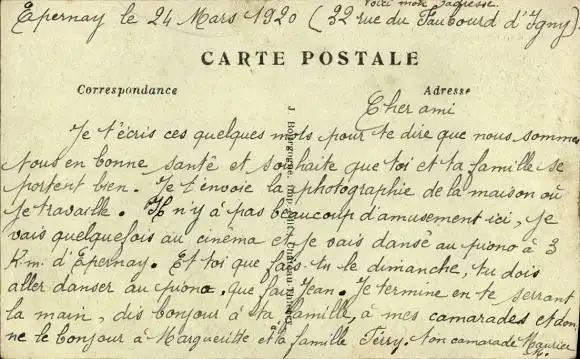 Voici mon adresse.
Epernay le 24 Mars 1920 (32 rue du Faubourd d'Igny).
CARTE POSTALE
Correspondance
Adresse
Cher ami
Je t'écris ces quelques mots pour te dire que nous sommes
tous en bonne santé et souhaite que toi et ta famille se
portent bien. Je t'envoie la photographie de la maison où
je travaille. Il n'y à pas beaucoup d'amusement ici, je
vais quelquefois au cinéma et je vais dansé au piono à 3
Km. d'Epernay. Et toi que fais-tu le dimanche, tu dois
aller danser au piono. que fait Jean. Je termine en te serrant
la main, dis bonjour à ta famille, à mes camarades et don
ne le bonjour à Margueritte et à la famille Ferry. ton camarade Maurice
J. Bourgogne, imp. édit., Château-Thierry